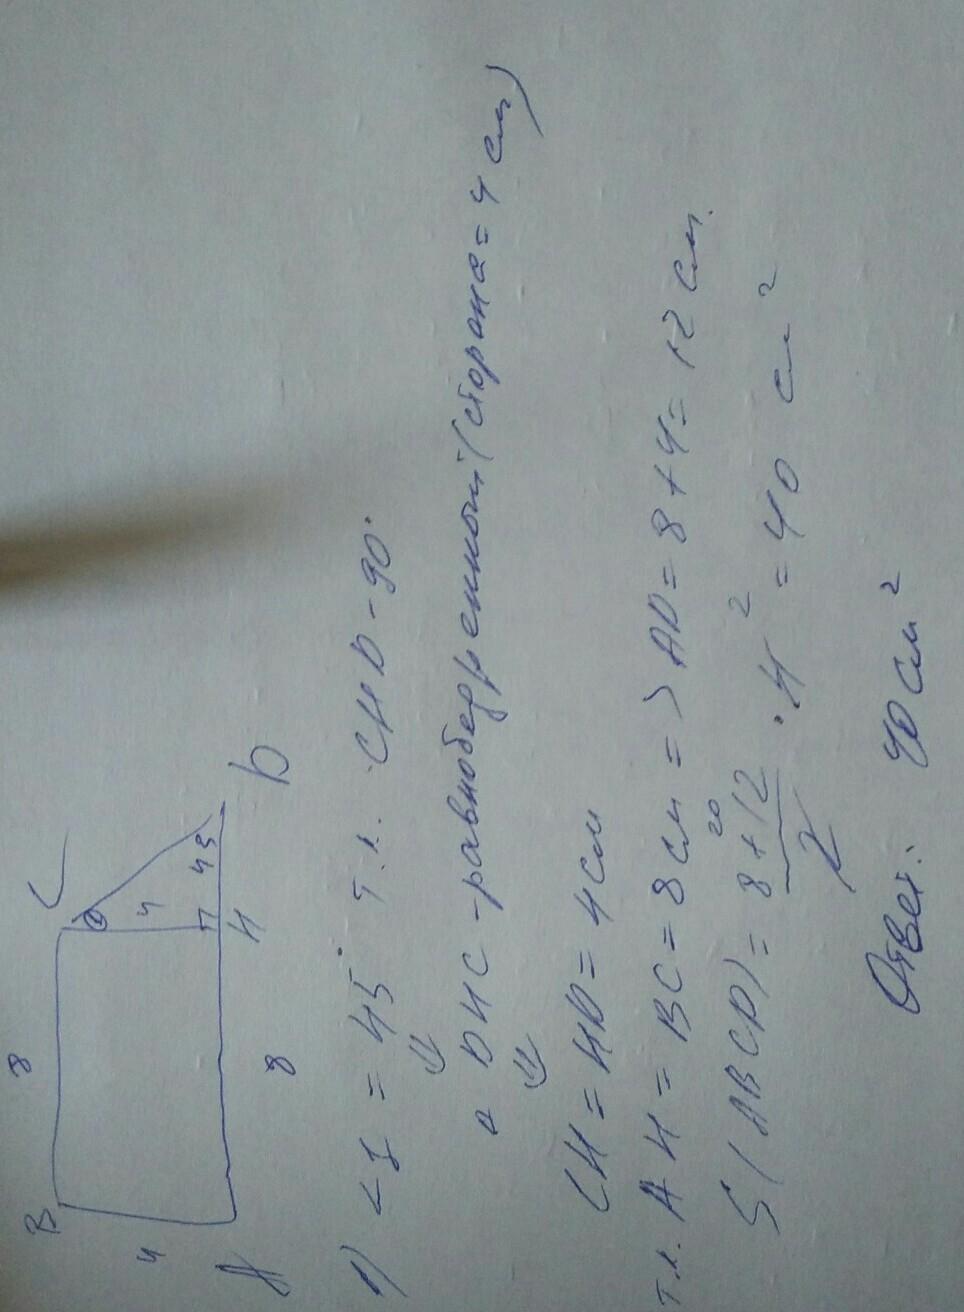 B 8 C
4 4 45
A 8 H D
1) <1 = 45° т.к. CHD - 90°
⇓
△ DHC - равнобедренный (сторона = 4 см)
⇓
CH = HD = 4 см
т.к. AH = BC = 8 см => AD = 8 + 4 = 12 см.
20 2
S (ABCD) = 8 + 12 / 2 · 4 = 40 см²
Ответ: 40 см²